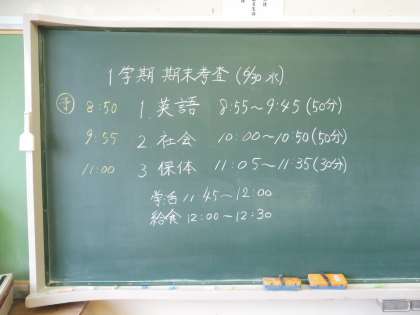 1学期 期末考査 (6/30 水)
予 8:50 1. 英語 8:55〜9:45 (50分)
9:55 2. 社会 10:00〜10:50 (50分)
11:00 3. 保体 11:05〜11:35 (30分)
学活 11:45〜12:00
給食 12:00〜12:30